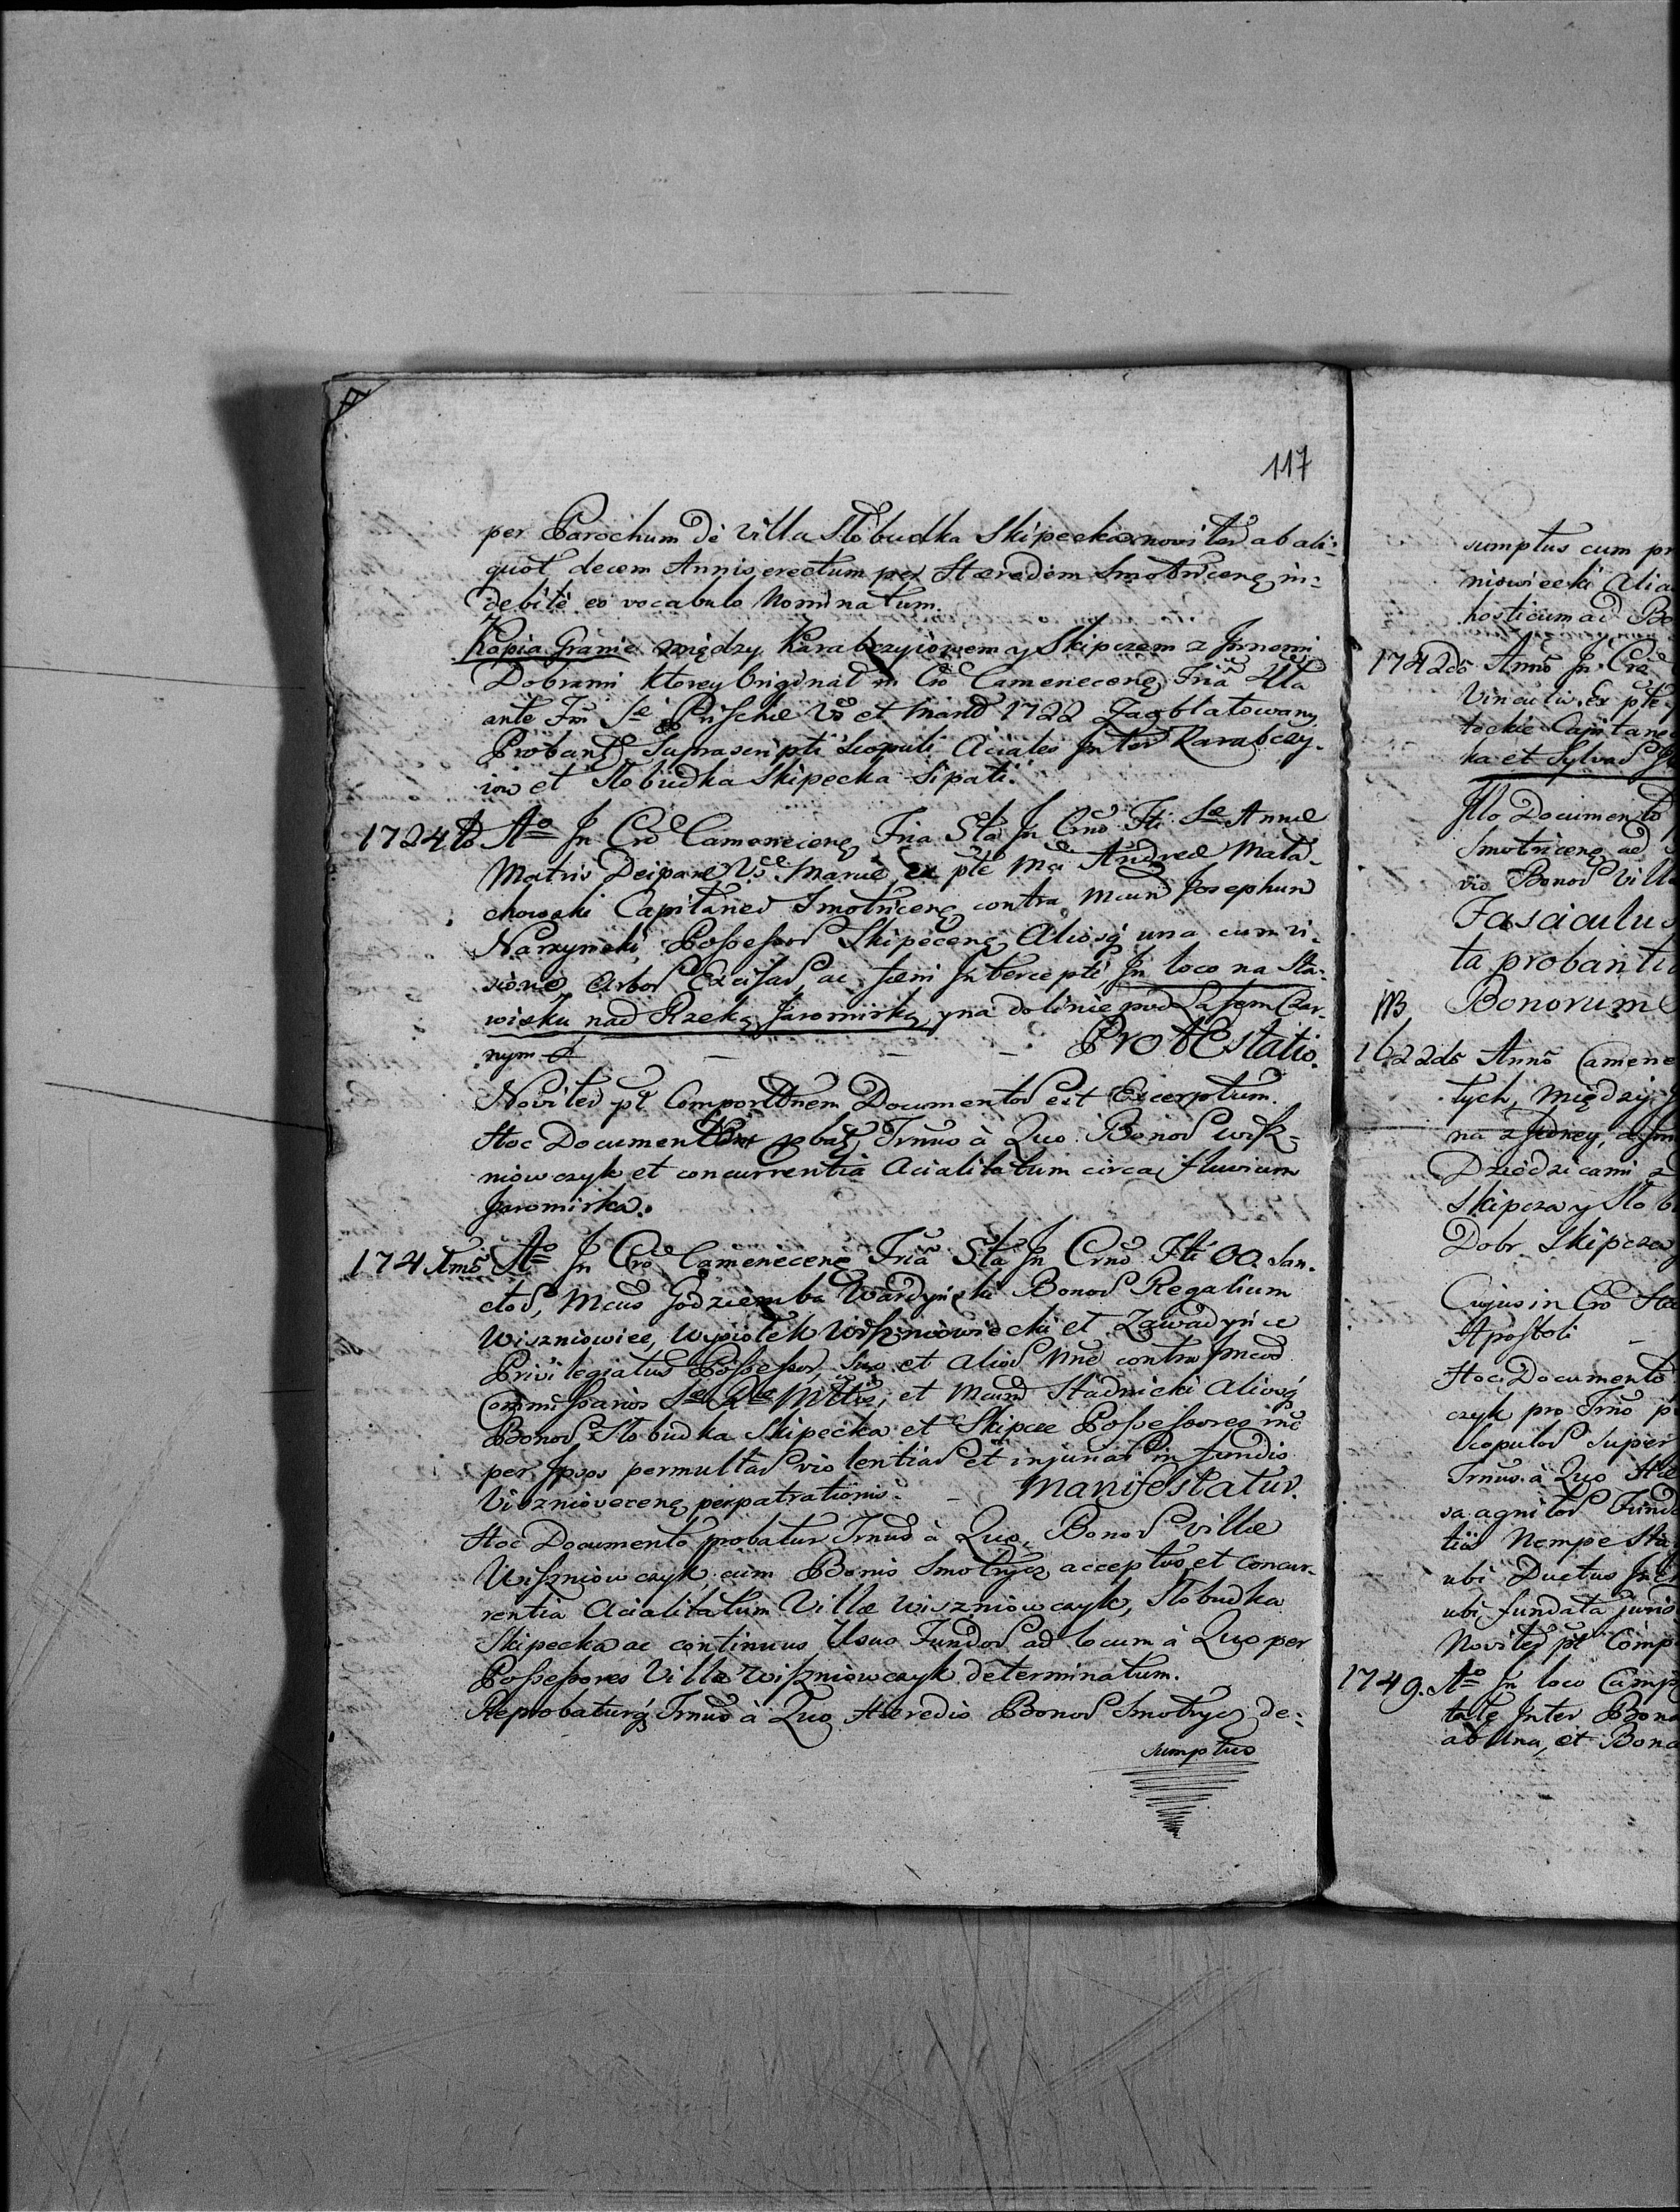 117
per Parochum de Villa Słobudka Skipecka noviter ab ali:
quot decem Annis erectum per Hæredem Smotricenᵉ in:
debite eo vocabulo Nominatum.
Kopia Granic między Karabczyiowem y Skipczem z Jnnemi
Dobrami ktorey Originał in Cro Camenecenᵉ Fria IIta
ante Fm Sᵉ Priscæ Vs et Mand 1722 Zaoblatowany
Probanᵗ Suprascripti Scopuli Aciales Jnter Karabczy-
iow et Słobudka Skipecka Sipati.
1724to Aᵒ Jn Cro Camenecenᵉ Fria Sta Jn Crno Fti Sᵉ Annæ
Matris Deiparæ Vs Mariæ, ex pte Mci Andreæ Mała-
chowski Capitanei Smotricenᵉ contra Mcum Josephum
Narzynski Possessor Skipecenᵉ Aliosq una cum vi-
sione Arbor Excisar ac fœni Jntercepti, Jn loco na Sta-
wisku nad Rzeką Jaromirką, y na dolinie pod Lasem Czar-
nym - - - Protestatio.
Noviter pt Comportõnem Documentor est Excerptum.
Hoc Documentum pbat, Trnus à Quo Bonor Wisz-
niowczyk et concurrentia Acialitatum circa fluvium
Jaromirka.
174 1mo Aᵒ Jn Cro Camenecenᵉ Fria Sta Jn Crno Fti OO. San-
ctor, Mcus Godziemba Wardyński Bonor Regalium
Wiszniowiec, Wysiołek Wiszniowiecki et Zawadyńce
Privilegiatus Possessor, suo et Alior Nne contra Jmcos
Commissarios Sᵉ Rᵉ Mttis, et Mcum Stadnicki Aliosq
Bonor Słobudka Skipecka et Skipcze Possessores inᵉ
per Jpsos permultas violentias et injurias in fundis
Viszniovecenᵉ perpatrationis - Manifestatur.
Hoc Documento probatur Trnus à Quo, Bonor Villæ
Wiszniowczyk, cum Bonis Smotrycz acceptus, et Concur-
rentia Acialitatum Villæ Wiszniowczyk, Słobudka
Skipecka ac continuus Usus Fundor ad locum à Quo per
Possessores Villæ Wiszniowczyk determinatum.
Reprobaturq Trnus à Quo Hæredis Bonor Smotrycz de:
sumptus
sumptus cum pr
niowiecki Alia
hosticum ad Bo
1742do Anno Jn Cro
Vinculis. Ex pte
tockie Capitane
ka et Sylvas
Jllo Documento
Smotricenᵉ ad
vis Bonor Villæ
Fasciculus
ta probantia
NB Bonorum
1622do Anno Camene
tych, Między
na z Jedney, a
Dziedzicami z
Skipcza y Słob
Dobr Skipcza
Cujus in Cro Sta
Apostoli -
Hoc Documento
czyk pro Trno
Scopulos super
Trnus à Quo
sa agnitos Fund
tiis Nempe Sta
ubi Ductus
ubi fundata juris
Noviter pt Comp
1749. Aᵒ Jn loco Camp
tate Jnter Bona
ab Una, et Bona